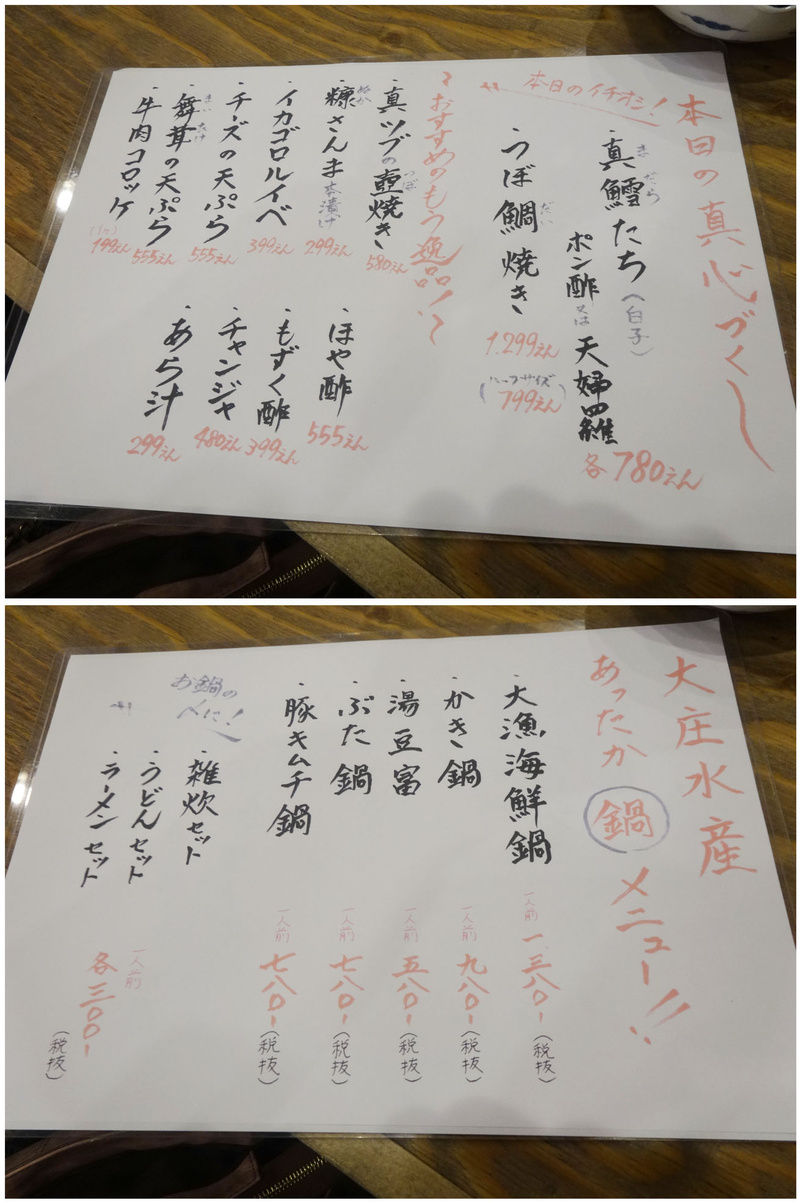 本日の真心づくし
本日のイチオシ!
・真鱈たち(白子)
まだら
ポン酢又は天婦羅
各780えん
・つぼ鯛焼き
だい
1.299えん
(ハーフサイズ)
799えん
〜おすすめのもう逸品!〜
・真ツブの壺焼き
つぼ
580えん
・糠さんま本漬け
ぬか
299えん
・イカゴロルイベ
399えん
・チーズの天ぷら
555えん
・舞茸の天ぷら
まいたけ
555えん
・牛肉コロッケ
(1コ)
199えん
・ほや酢
555えん
・もずく酢
399えん
・チャンジャ
480えん
・あら汁
299えん
大庄水産
あったか鍋メニュー!!
・大漁海鮮鍋
一人前 一、三八〇-(税抜)
・かき鍋
一人前 九八〇-(税抜)
・湯豆富
一人前 五八〇-(税抜)
・ぶた鍋
一人前 七八〇-(税抜)
・豚キムチ鍋
一人前 七八〇-(税抜)
お鍋の〆に!
・雑炊セット
・うどんセット
・ラーメンセット
一人前
各三〇〇-(税抜)